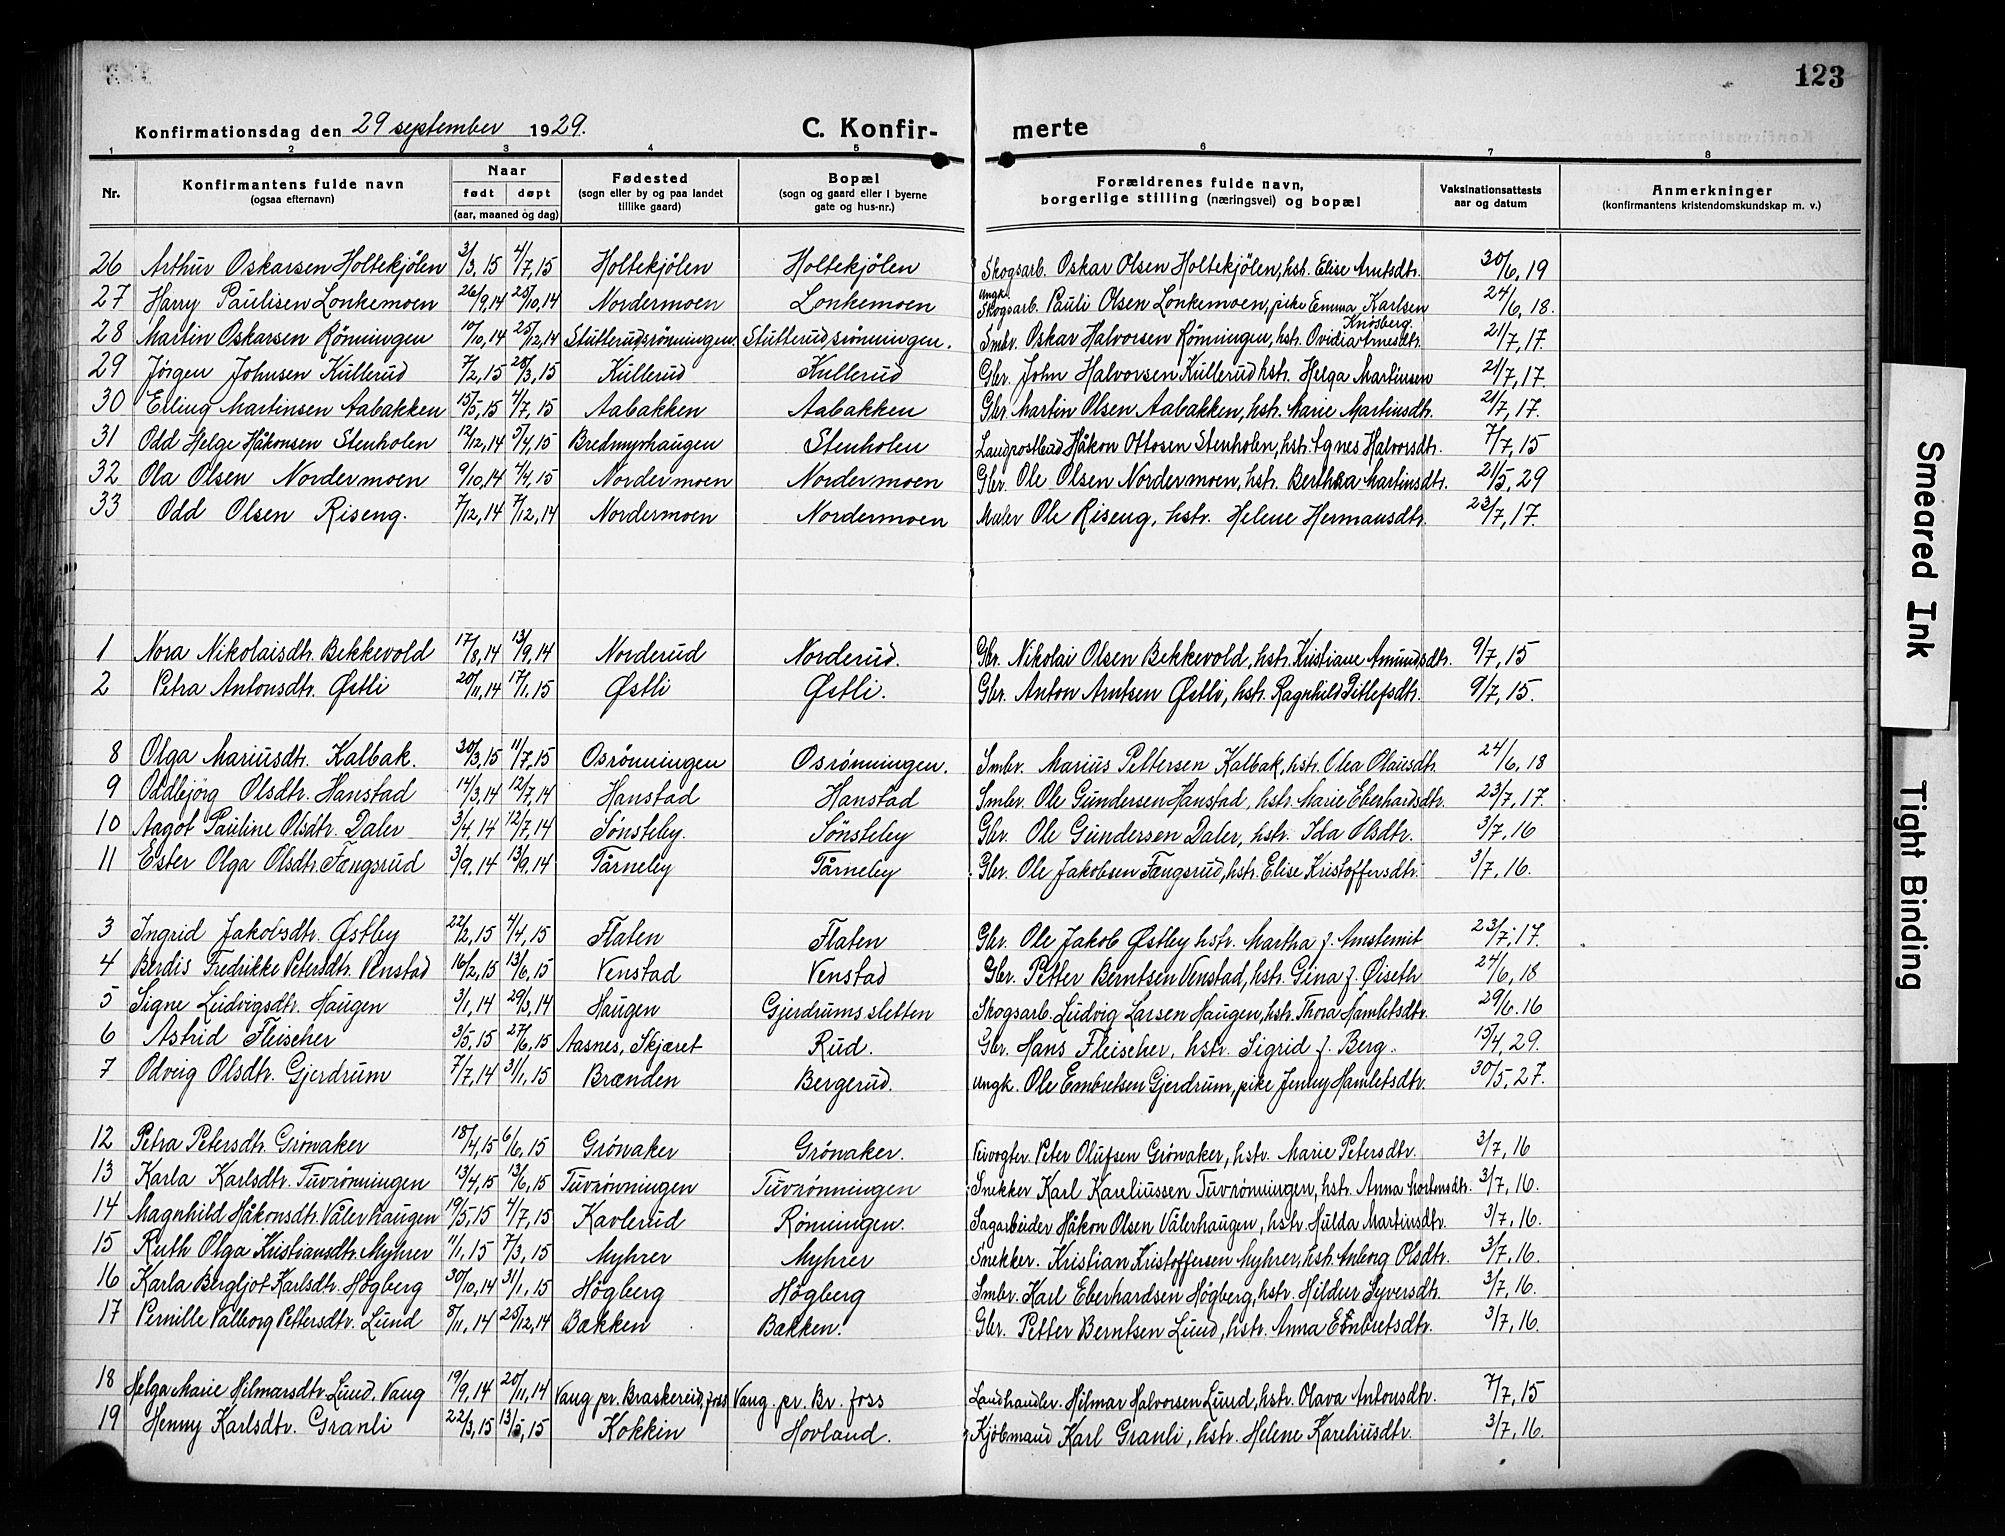 123
Konfirmationsdag den 29 september 1929.
C. Konfir- merte
1 2 3 4 5 6 7 8
Nr. Konfirmantens fulde navn (ogsaa efternavn) Naar født døpt (aar, maaned og dag) Fødested (sogn eller by og paa landet tillike gaard) Bopæl (sogn og gaard eller i byerne gate og hus-nr.) Forældrenes fulde navn, borgerlige stilling (næringsvei) og bopæl Vaksinationsattests aar og datum Anmerkninger (konfirmantens kristendomskundskap m. v.)
26 Arthur Oskarsen Holtekjölen 3/3, 15 4/7, 15 Holtekjölen Holtekjölen Skogsarb. Oskar Olsen Holtekjölen, hst. Elise Arntsdtr. 30/6, 19
27 Harry Paulisen Lonkemoen 26/9, 14 25/10, 14 Nordermoen Lonkemoen Ungk. Skogsarb. Pauli Olsen Lonkemoen, pike Emma Karlsen Knosberg. 24/6, 18.
28 Martin Oskarsen Rönningen 10/10, 14 25/12, 14 Stutterudsrönningen. Stutterudsrönningen. Smbr. Oskar Halvorsen Rönningen, hstr. 21/7, 17.
29 Jörgen Johnsen Kullerud 7/2, 15 28/3, 15 Kullerud Kullerud Gbr. John Halvorsen Kullerud hstr. Helga Martinsen 21/7, 17.
30 Erling Martinsen Aabakken 15/5, 15 4/7, 15 Aabakken Aabakken Gbr. Martin Olsen Aabakken, hstr. Marie Martinsdtr. 21/7, 17.
31 Odd Helge Håkonsen Stenholen 12/12, 14 5/4, 15 Bredmyrhaugen Stenholen Landpostbud Håkon Ottosen Stenholen, hstr. Agnes Halvorsdtr. 7/7, 15
32 Ola Olsen Nordermoen 9/10, 14 4/4, 15 Nordermoen Nordermoen Gbr. Ole Olsen Nordermoen, hstr. Berthea Martinsdtr. 21/5, 29
33 Odd Olsen Riseng. 7/12, 14 7/12, 14 Nordermoen Nordermoen Maler Ole Riseng, hstr. Helene Hermansdtr. 23/7, 17.
1 Nora Nikolaisdtr. Bekkevold 17/8, 14 13/9, 14 Norderud Norderud. Gbr. Nikolai Olsen Bekkevold, hstr. Kristiane Amundsdtr. 9/7, 15
2 Petra Antonsdtr. Østli 20/11, 14 17/1, 15 Østli Østli. Gbr. Anton Arntsen Østli, hstr. Ragnhild Ditlefsdtr. 9/7, 15.
8 Olga Mariusdtr. Kalbak. 30/3, 15 11/7, 15 Osrönningen Osrönningen. Smbr. Marius Pettersen Kalbak, hstr. Olea Olausdtr. 24/6, 18
9 Oddbjörg Olsdtr. Hanstad 14/3, 14 12/7, 14 Hanstad Hanstad Smbr. Ole Gundersen Hanstad, hstr. Marie Eberhardsdtr. 23/7, 17.
10 Aagot Pauline Olsdtr. Daler 3/4, 14 12/7, 14 Sönsteby. Sönsteby Gbr. Ole Gundersen Daler, hstr. Ida Olsdtr. 3/7, 16
11 Ester Olga Olsdtr. Fængsrud 3/9, 14 13/9, 14 Tårneby Tårneby Gbr. Ole Jakobsen Fængsrud, hstr. Elise Kristoffersdtr. 3/7, 16.
3 Ingrid Jakobsdtr. Østby 22/2, 15 4/4, 15 Flaten Flaten Gbr. Ole Jakob Østby hstr. Martha f. 23/7, 17.
4 Berdis Fredrikke Petersdtr. Venstad 16/2, 15 13/6, 15 Venstad Venstad Gbr. Petter Berntsen Venstad, hstr. Gina f. Øiseth 24/6, 18
5 Signe Ludvigsdtr. Haugen 3/1, 14 29/3, 14 Haugen Gjerdrumssletten Skogsarb. Ludvig Larsen Haugen, hstr. Thora Hamletsdtr. 29/6. 16
6 Astrid Fleischer 3/5, 15 27/6, 15 Aasnes, Skjæret Rud. Gbr. Hans Fleischer, hstr. Sigrid f. Berg. 15/4, 29.
7 Odveig Olsdtr. Gjerdrum 7/7, 14 31/1, 15 Brænden Bergerud. Ungk. Ole Embretsen Gjerdrum, pike Jenny Hamletsdtr. 30/5, 27.
12 Petra Petersdtr. Grönaker 18/4, 15 6/6, 15 Grönaker Grönaker. Peter Olufsen Grönaker, hstr. Marie Petersdtr. 3/7, 16
13 Karla Karlsdtr. Tuvrönningen 13/4, 15 13/6, 15 Tuvrönningen Tuvrönningen Snekker Karl Kareliussen Tuvrönningen, hstr. Anna Mortensdtr. 3/7, 16.
14 Magnhild Håkonsdtr. Vålerhaugen 19/5, 15 4/7, 15 Kavlerud Rönningen. Sagarbeider Håkon Olsen Vålerhaugen, hstr. Hulda Martinsdtr. 3/7, 16.
15 Ruth Olga Kristiansdtr. Myhrer 11/1, 15 7/3, 15 Myhrer Myhrer Snekker. Kristian Kristoffersen Myhrer, hstr. Anborg Olsdtr. 3/7, 16.
16 Karla Bergljot Karlsdtr. Högberg 30/10, 14 31/1, 15 Högberg Högberg Smbr. Karl Eberhardsen Högberg, hstr. Hildur Syversdtr. 3/7, 16.
17 Pernille Valborg Pettersdtr. Lund 8/11, 14 25/12, 14 Bakken Bakken. Gbr. Petter Berntsen Lund, hstr. Anna Embretsdtr. 3/7, 16.
18 Helga Marie Hilmarsdtr. Lund, Vang 19/9, 14 20/11, 14 Vang pr. Braskereid, foss Vang. pr. Br. foss Landhandler. Hilmar Halvorsen Lund, hstr. Olava Antonsdtr. 7/7, 15
19 Henny Karlsdtr. Granli 22/3, 15 13/5, 15 Kokkin Hovland. Kjöbmand Karl Granli, hstr. Helene Kareliusdtr. 3/7, 16.
Smeared Ink
Tight Binding